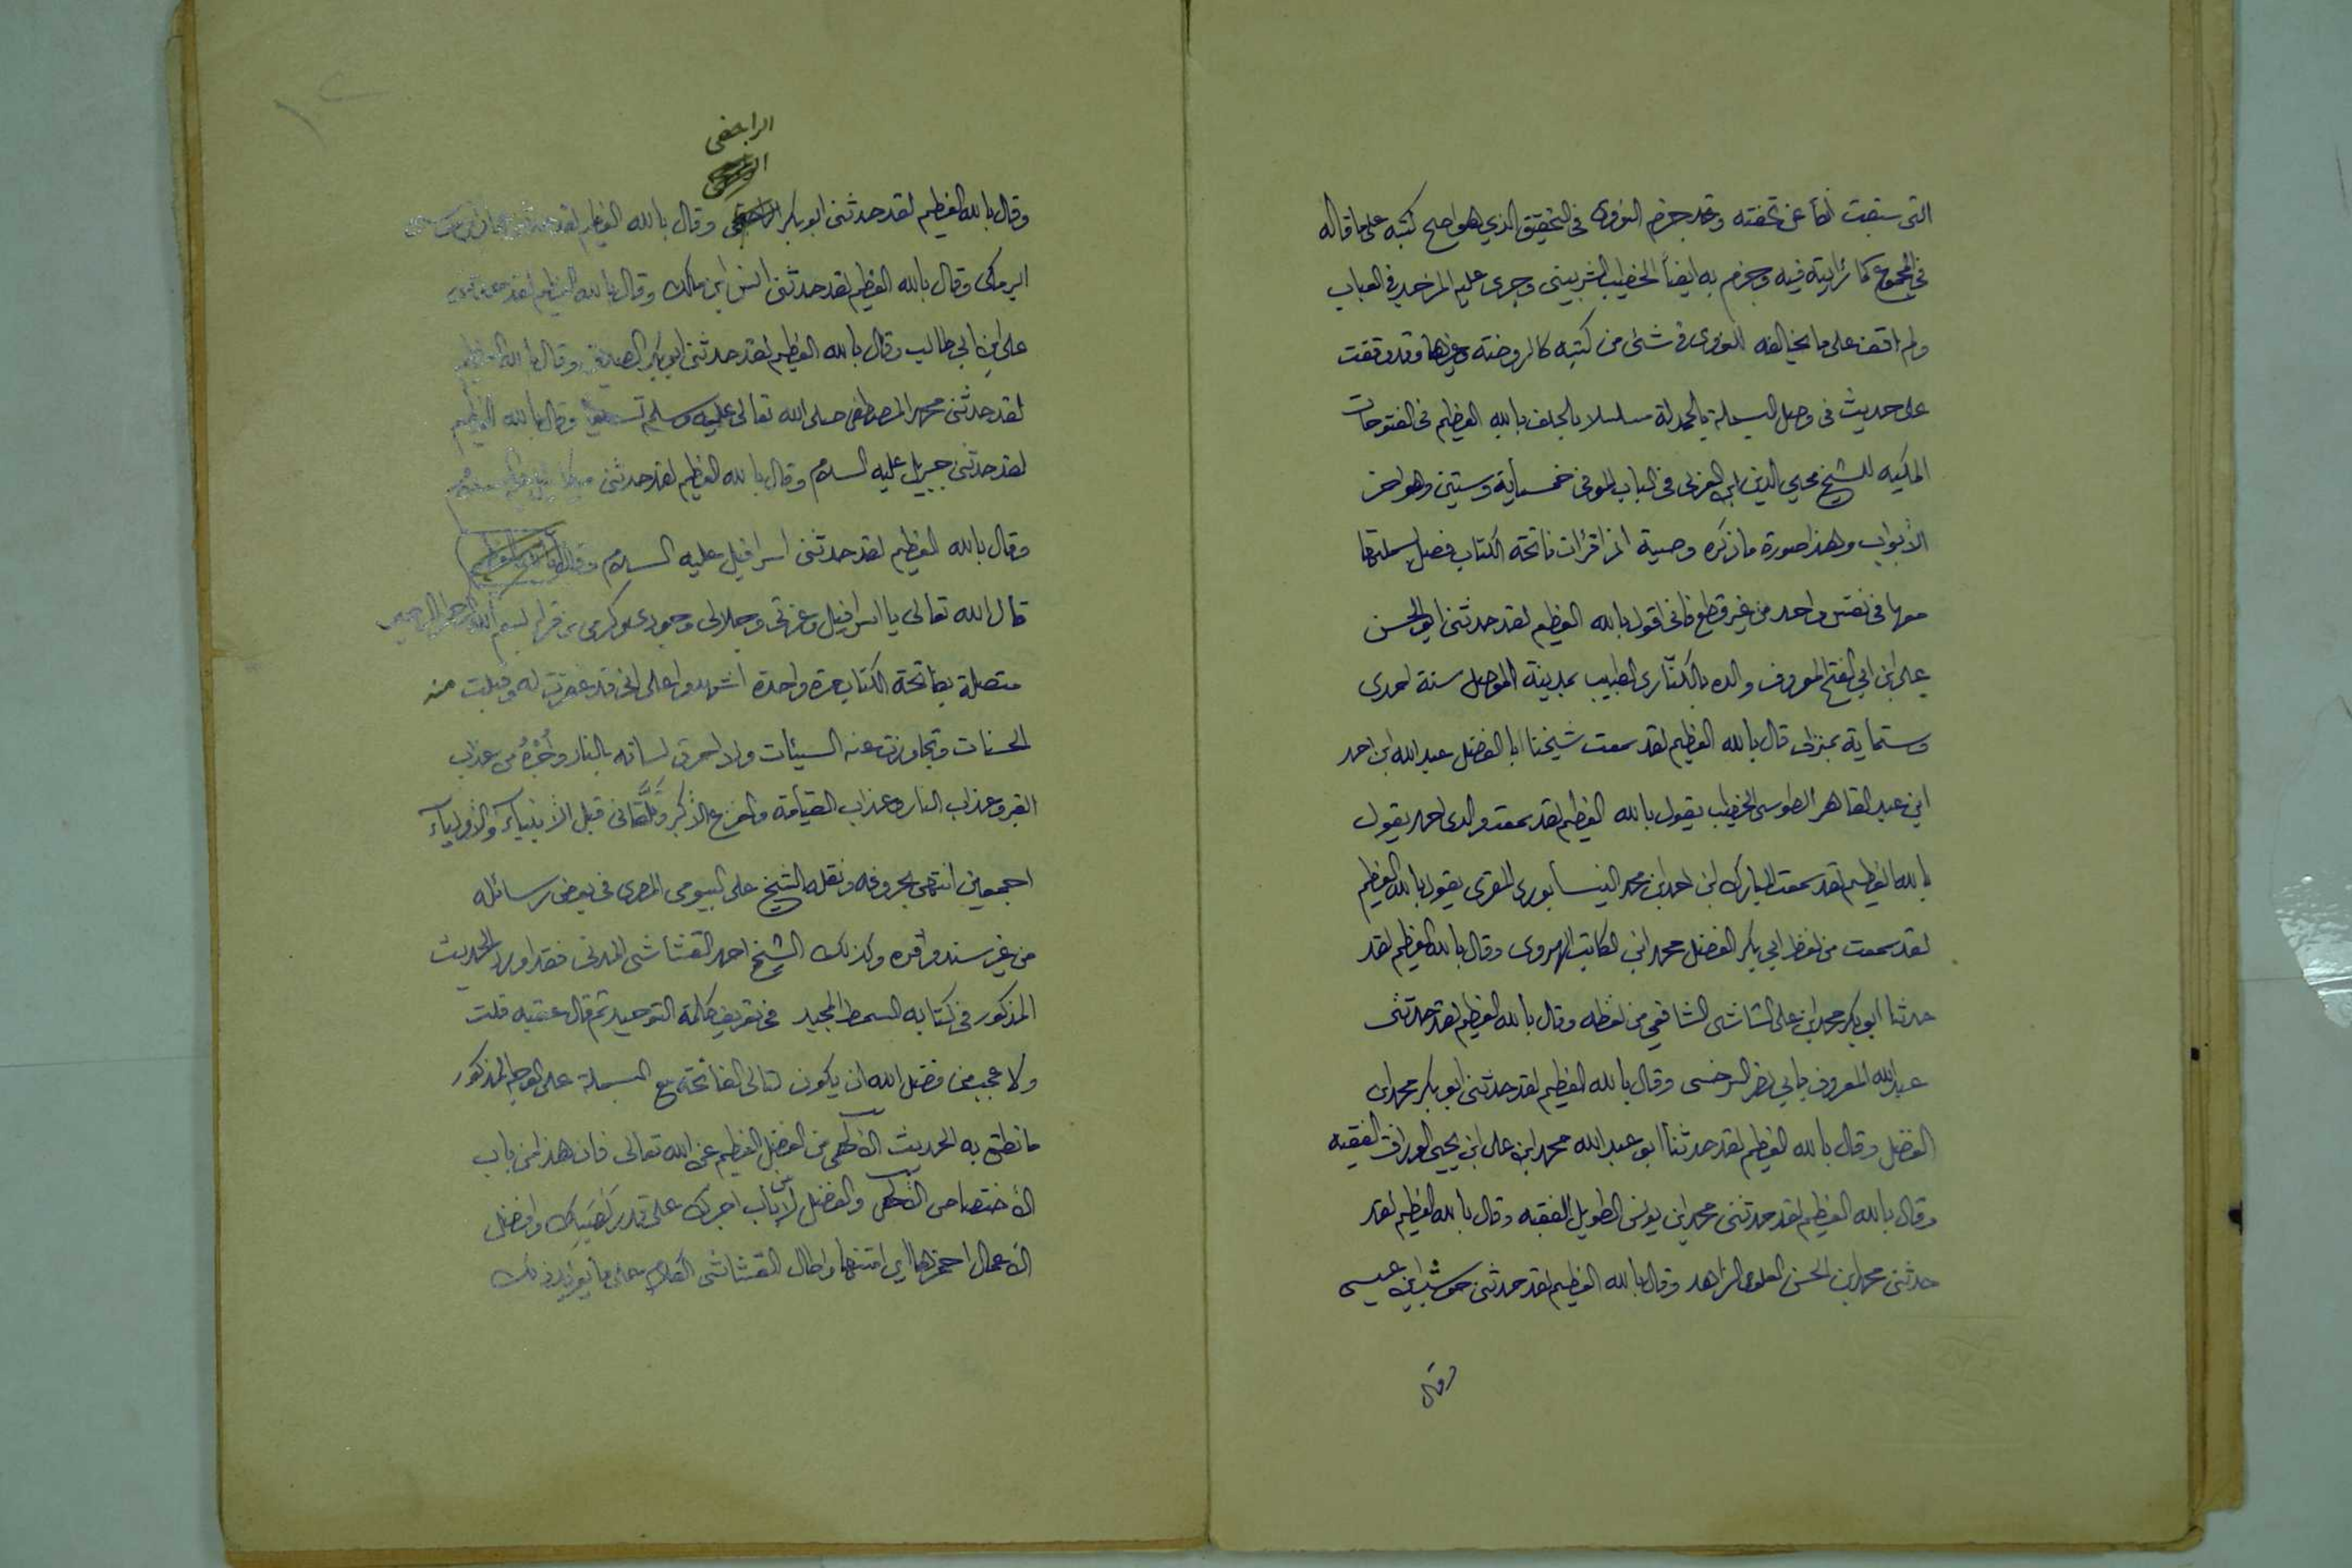 التي سبقت انفا عن تحفته وقد جزم النووى فى التحقيق الذي هو اصح كتبه على ما قاله
في المجموع كما رايته فيه وجزم به ايضاً الخطيب الشربينى وجرى عليه المزجد في العباب
ولم اقف على ما يخالفه للنووى فى شئى من كتبه كالروضة وغيرها وقد وقفت
على حديث فى وصل البسملة بالحمدلة مسلسلا بالحلف بالله العظيم فى الفتوحات
المكيه للشيخ محيي الدين ابن العربى فى الباب الموفى خمسماية وستين وهو اخر
الأبواب وهذا صورة ما ذكره وصية اذا قرأت فاتحة الكتاب فصل بسملتها
معها فى نفس واحد من غير قطع فانى اقول بالله العظيم لقد حدثنى ابو الحسن
على ابن ابي الفتح المعروف والده بالكنّارى الطبيب بمدينة الموصل سنة احدى
وستماية بمنزلى قال بالله العظيم لقد سمعت شيخنا ابا الفضل عبد الله ابن احمد
ابن عبد القاهر الطوسى الخطيب يقول بالله العظيم لقد سمعت والدى احمد يقول
بالله العظيم لقد سمعت المبارك ابن احمد بن محمد النيسابورى المقرى يقول بالله العظيم
لقد سمعت من لفظ ابي بكر الفضل محمد ابن الكاتب الهروى وقال بالله العظيم لقد
حدثنا ابو بكر محمد ابن على الشاشى الشافعى من لفظه وقال بالله العظيم لقد حدثنى
عبد الله المعروف بابي نصر السرخسى وقال بالله العظيم لقد حدثنى ابو بكر محمد ابن
الفضل وقال بالله العظيم لقد حدثنا ابو عبد الله محمد ابن على ابن يحيى الوراق الفقيه
وقال بالله العظيم لقد حدثنى محمد ابن يونس الطويل الفقيه وقال بالله العظيم لقد
حدثنى محمد ابن الحسن العلوى الزاهد وقال بالله العظيم لقد حدثنى موسى ابن عيسى
وقال
الراجعى
وقال بالله العظيم لقد حدثنى ابو بكر الراجعى وقال بالله العظيم لقد حدثنى عمار ابن موسى
البرمكى وقال بالله العظيم لقد حدثنى انس ابن مالك وقال بالله العظيم لقد حدثنى
على ابن ابي طالب وقال بالله العظيم لقد حدثنى ابو بكر الصديق وقال بالله العظيم
لقد حدثنى محمد المصطفى صلى الله تعالى عليه وسلم تسليما وقال بالله العظيم
لقد حدثنى جبريل عليه السلام وقال بالله العظيم لقد حدثنى ميكائيل عليه السلام
وقال بالله العظيم لقد حدثنى اسرافيل عليه السلام وقال بالله العظيم
قال الله تعالى يا اسرافيل وعزتى وجلالى وجودى وكرمى من قرا بسم الله الرحمن الرحيم
متصلة بفاتحة الكتاب مرة واحدة اشهدوا على انى قد غفرت له وقبلت منه
الحسنات وتجاوزت عنه السيئات ولا احرق لسانه بالنار وأجره من عذاب
القبر وعذاب النار وعذاب القيامة والفزع الأكبر وتلقانى قبل الأنبياء والأولياء
اجمعين انتهى بحروفه ونقله الشيخ على البيومى المصرى فى بعض رسائله
من غير سند واقره وكذلك الشيخ احمد القشاشى المدنى فقد اورد الحديث
المذكور فى كتابه السمط المجيد فى تعريف كلمة التوحيد ثم قال عقبه قلت
ولا عجب من فضل الله ان يكون لتالى الفاتحة مع البسملة على الوجه المذكور
ما نطق به الحديث الألهى من الفضل العظيم من الله تعالى فان هذا من باب
الأختصاص الألهى والفضل لا من باب اجرك على قدر نصبك وافضل
الأعمال احمزها اي امتنها واطال القشاشى الكلام على ما يؤيد ذلك